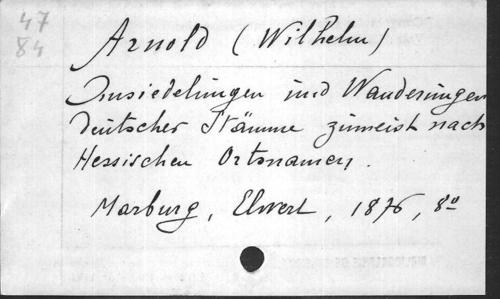 47
84
Arnold (Wilhelm)
Ansiedelungen und Wanderungen
deutscher Stämme zumeist nach
Hessischen Ortsnamen.
Marburg, Elwert, 1876, 8º